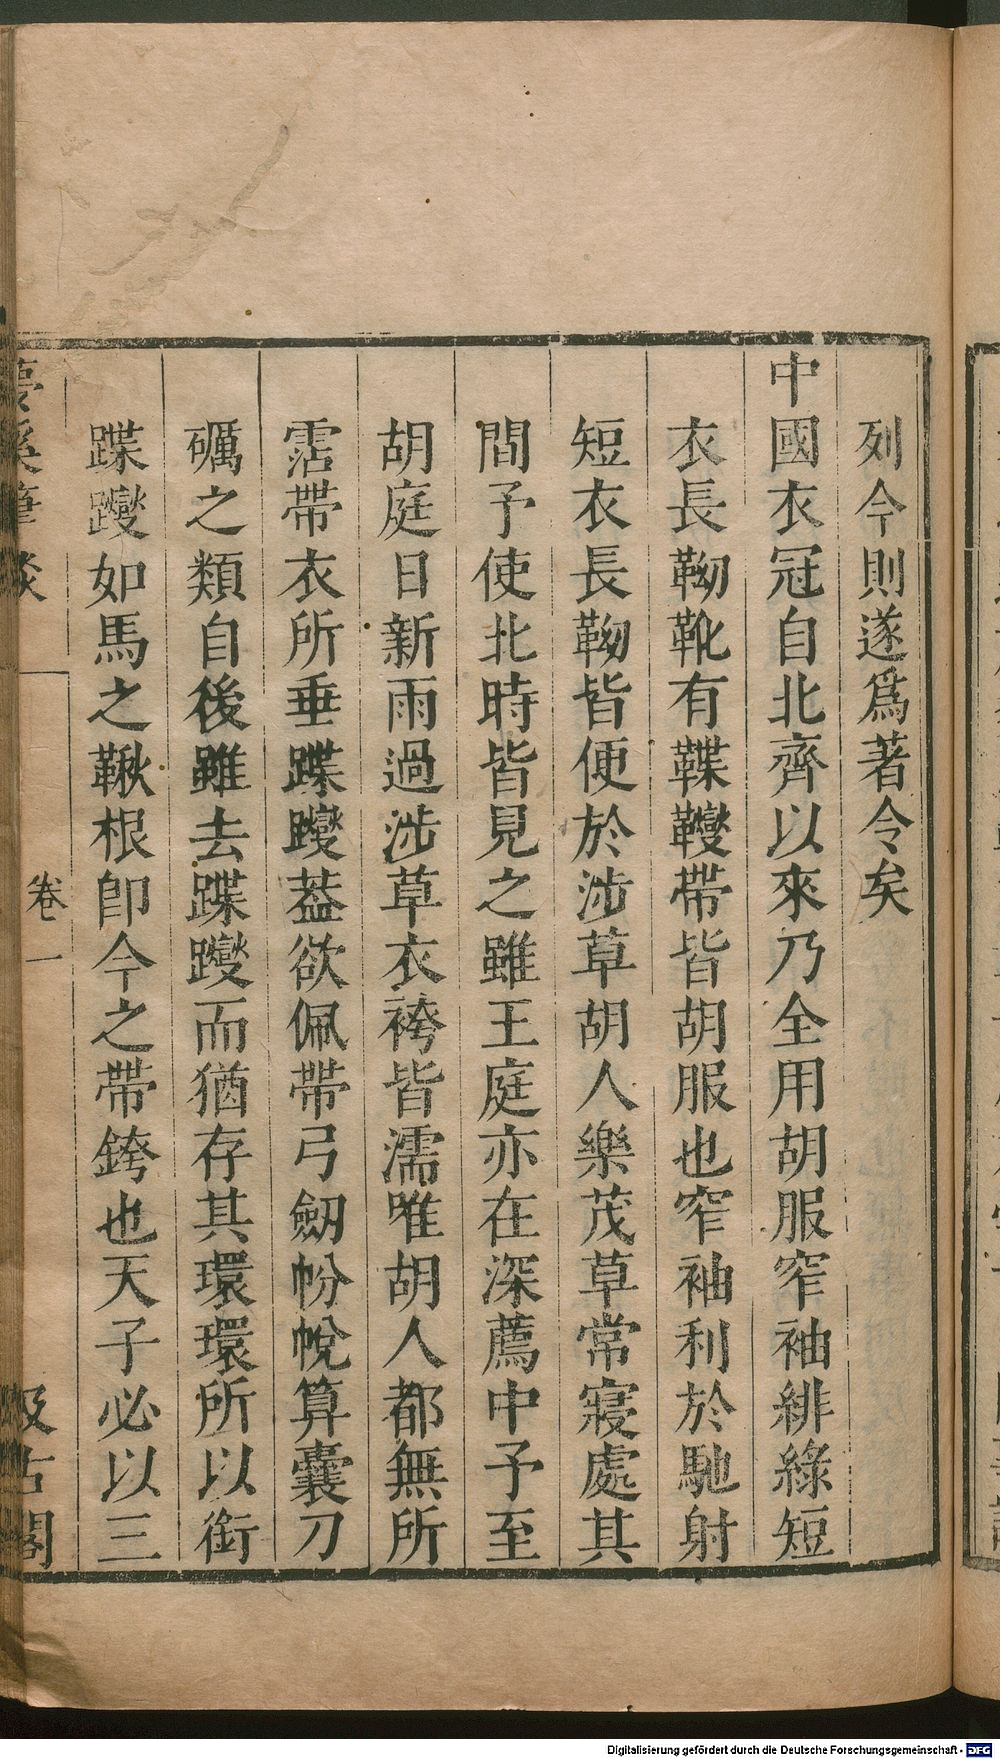 列今則遂爲著令矣
中國衣冠自北齊以來乃全用胡服窄袖緋綠短
衣長靿靴有鞢䪎帶皆胡服也窄袖利於馳射
短衣長靿皆便於涉草胡人樂茂草常寢處其
間予使北時皆見之雖王庭亦在深薦中予至
胡庭日新雨過涉草衣袴皆濡唯胡人都無所
霑帶衣所垂蹀躞葢欲佩帶弓劒帉帨算囊刀
礪之類自後雖去蹀躞而猶存其環環所以銜
蹀躞如馬之鞦根卽今之帶銙也天子必以三
夢溪筆談
卷一
汲古閣
Digitalisierung gefördert durch die Deutsche Forschungsgemeinschaft - DFG